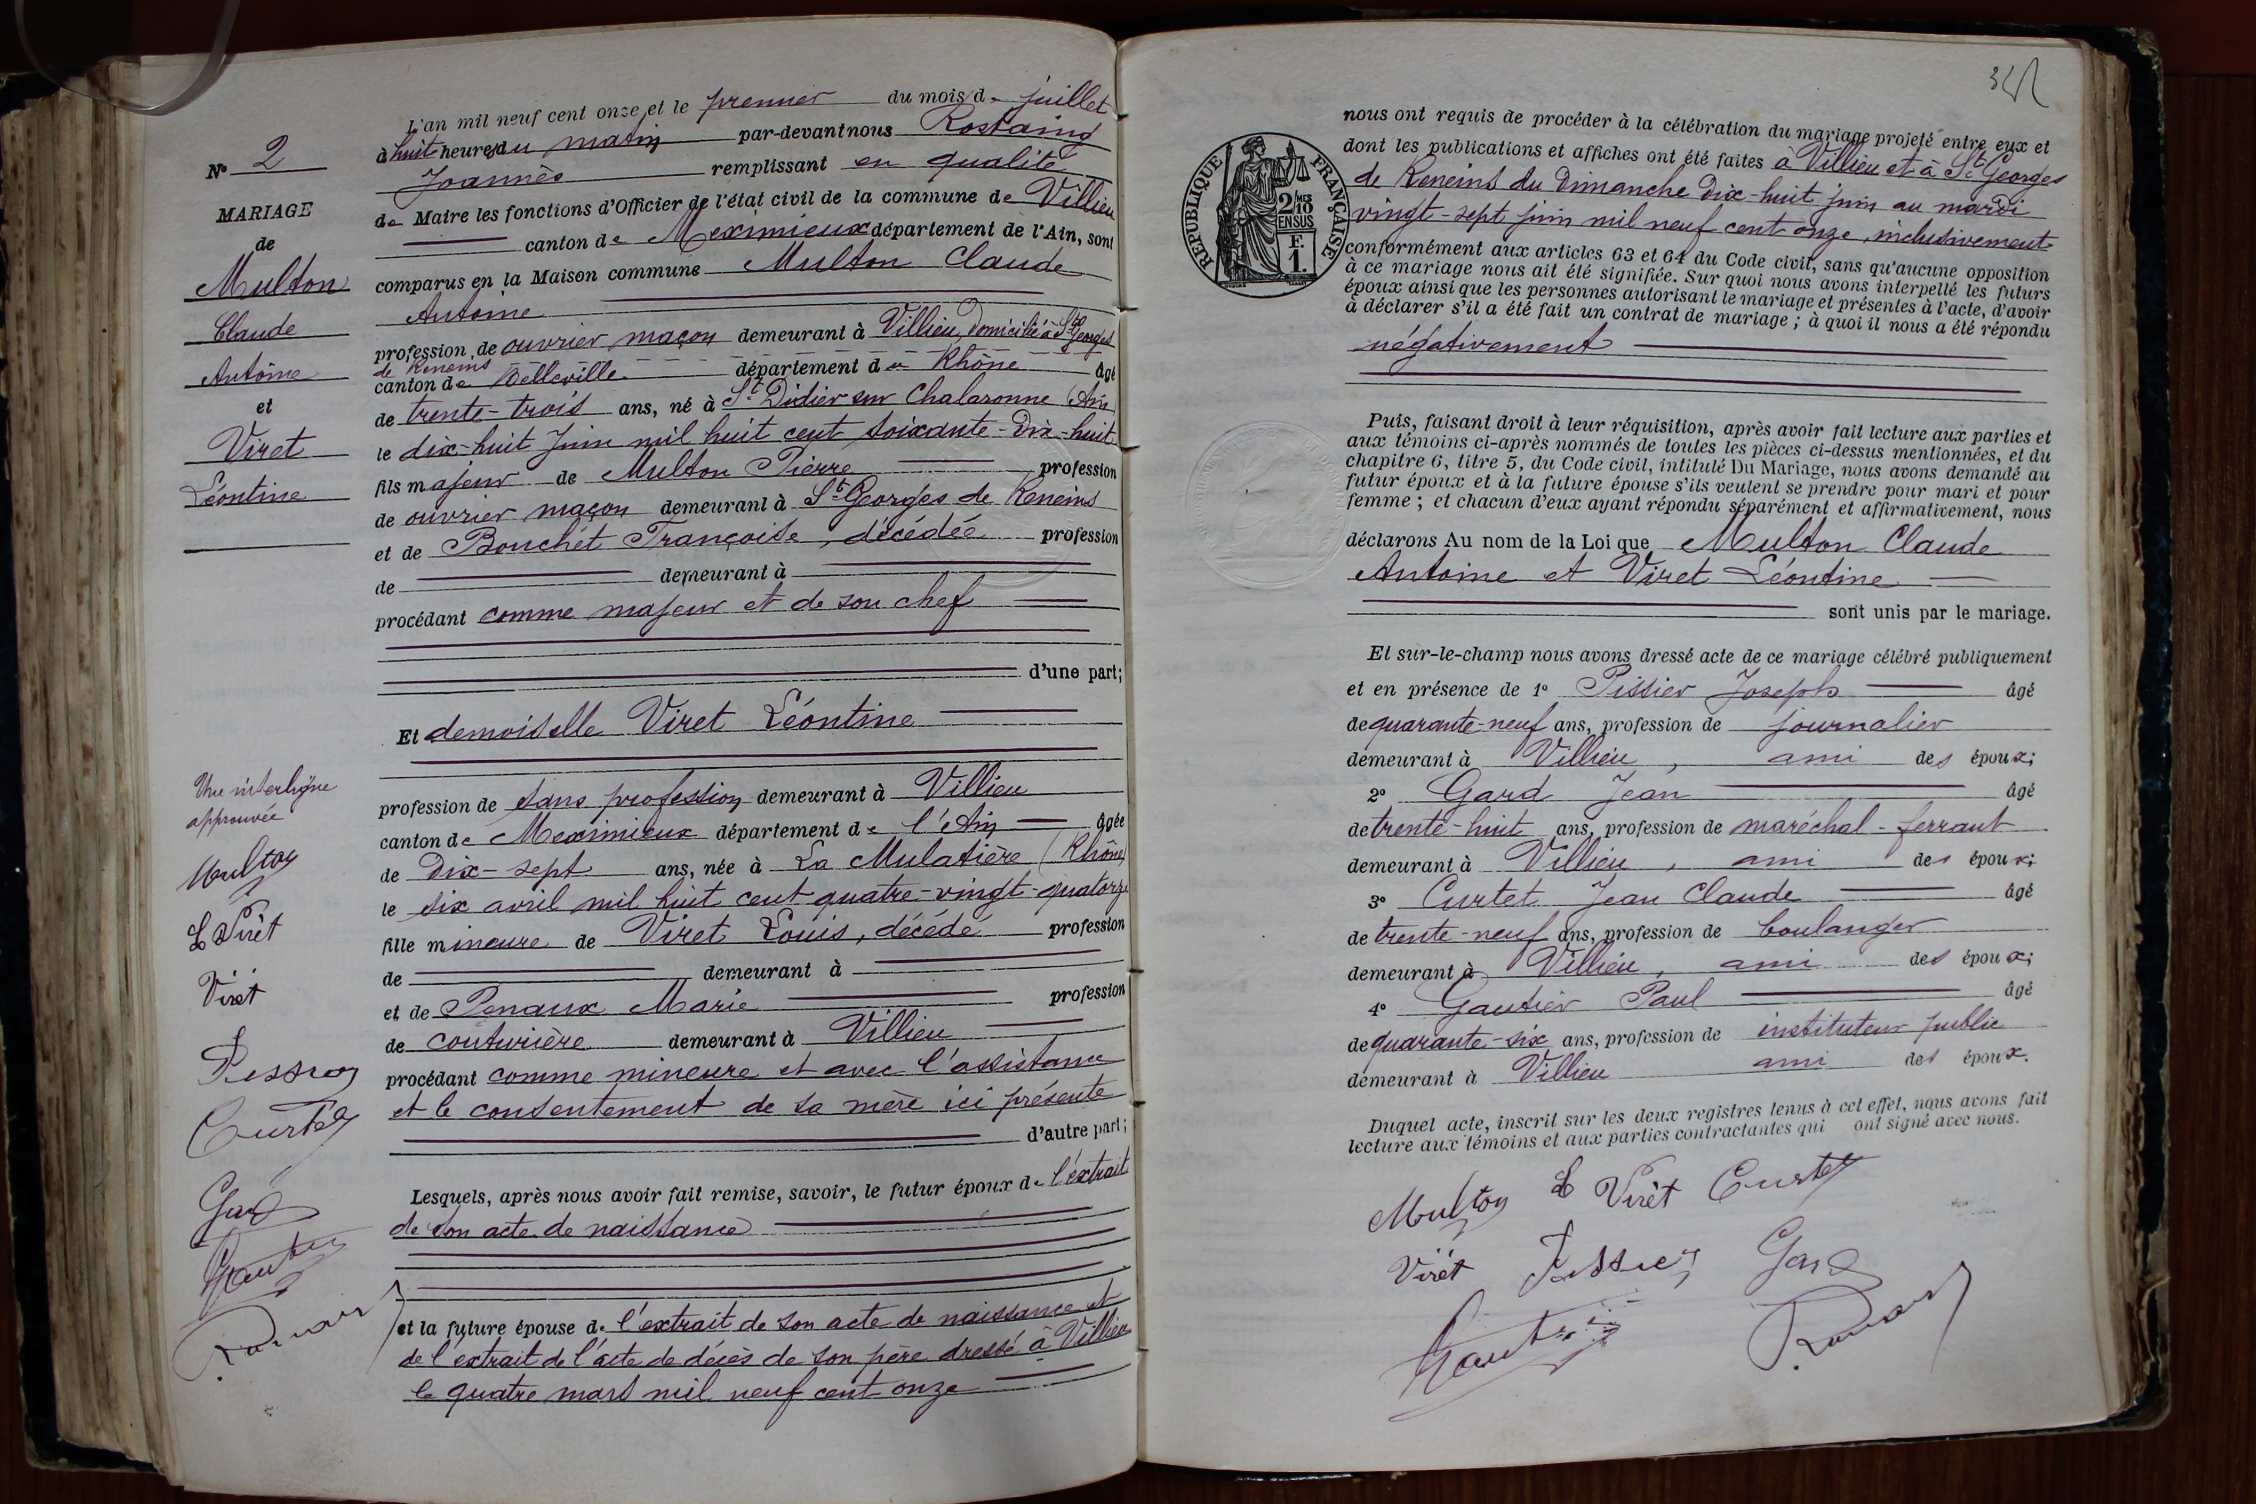 L'an mil neuf cent onze et le premier du mois de juillet
à huit heures du matin par-devant nous Rostaing
Joannès remplissant en qualité
de Maire les fonctions d'Officier de l'état civil de la commune de Villieu
canton de Meximieux département de l'Ain, sont
comparus en la Maison commune Multon Claude
Antoine
profession de ouvrier maçon demeurant à Villieu, domicilié à St Georges
de Reneins
canton de Belleville département du Rhône âgé
de trente-trois ans, né à St Didier sur Chalaronne (Ain)
le dix-huit Juin mil huit cent soixante-Dix-huit
fils majeur de Multon Pierre profession
de ouvrier maçon demeurant à St Georges de Reneins
et de Bouchet Françoise, décédée profession
de demeurant à
procédant comme majeur et de son chef
d'une part;
Et demoiselle Viret Léontine
profession de sans profession demeurant à Villieu
canton de Meximieux département de l'Ain âgée
de Dix-sept ans, née à La Mulatière (Rhône)
le six avril mil huit cent quatre-vingt-quatorze
fille mineure de Viret Louis, décédé profession
de demeurant à
et de Penaux Marie profession
de couturière demeurant à Villieu
procédant comme mineure et avec l'assistance
et le consentement de sa mère ici présente
d'autre part;
Lesquels, après nous avoir fait remise, savoir, le futur époux de l'extrait
de son acte de naissance
et la future épouse de l'extrait de son acte de naissance et
de l'extrait de l'acte de décès de son père dressé à Villieu
le quatre mars mil neuf cent onze
No 2
MARIAGE
de
Multon
Claude
Antoine
et
Viret
Léontine
Une interligne
approuvée
Multon
L Viret
Viret
Curtet
Gard
Gautier
nous ont requis de procéder à la célébration du mariage projeté entre eux et
dont les publications et affiches ont été faites à Villieu et à St Georges
de Reneins du Dimanche Dix-huit juin au mardi
vingt-sept juin mil neuf cent onze, inclusivement
conformément aux articles 63 et 64 du Code civil, sans qu'aucune opposition
à ce mariage nous ait été signifiée. Sur quoi nous avons interpellé les futurs
époux ainsi que les personnes autorisant le mariage et présentes à l'acte, d'avoir
à déclarer s'il a été fait un contrat de mariage ; à quoi il nous a été répondu
négativement
RÉPUBLIQUE FRANÇAISE
2/10 MES
EN SUS
F.
1.
Puis, faisant droit à leur réquisition, après avoir fait lecture aux parties et
aux témoins ci-après nommés de toutes les pièces ci-dessus mentionnées, et du
chapitre 6, titre 5, du Code civil, intitulé Du Mariage, nous avons demandé au
futur époux et à la future épouse s'ils veulent se prendre pour mari et pour
femme ; et chacun d'eux ayant répondu séparément et affirmativement, nous
déclarons Au nom de la Loi que Multon Claude
Antoine et Viret Léontine
sont unis par le mariage.
Et sur-le-champ nous avons dressé acte de ce mariage célébré publiquement
et en présence de 1o Pissier Joseph âgé
de quarante-neuf ans, profession de journalier
demeurant à Villieu, ami des époux;
2o Gard Jean âgé
de trente-huit ans, profession de maréchal-ferrant
demeurant à Villieu, ami des époux;
3o Curtet Jean Claude âgé
de trente-neuf ans, profession de boulanger
demeurant à Villieu, ami des époux;
4o Gautier Paul âgé
de quarante-six ans, profession de instituteur public
demeurant à Villieu ami des époux.
Duquel acte, inscrit sur les deux registres tenus à cet effet, nous avons fait
lecture aux témoins et aux parties contractantes qui ont signé avec nous.
Multon L Viret Curtet
Viret Gard
Gautier